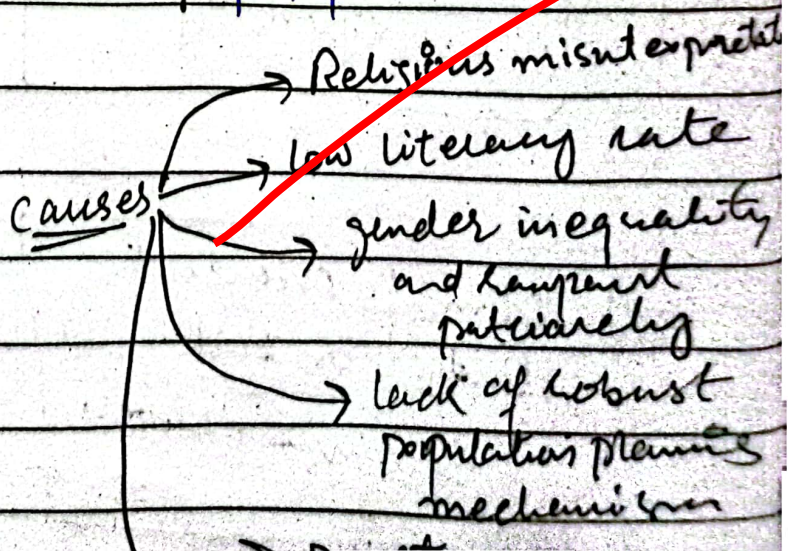 Religious misinterpretat
low literacy rate
causes
gender inequality
and rampant
patriarchy
lack of robust
population planning
mechanism